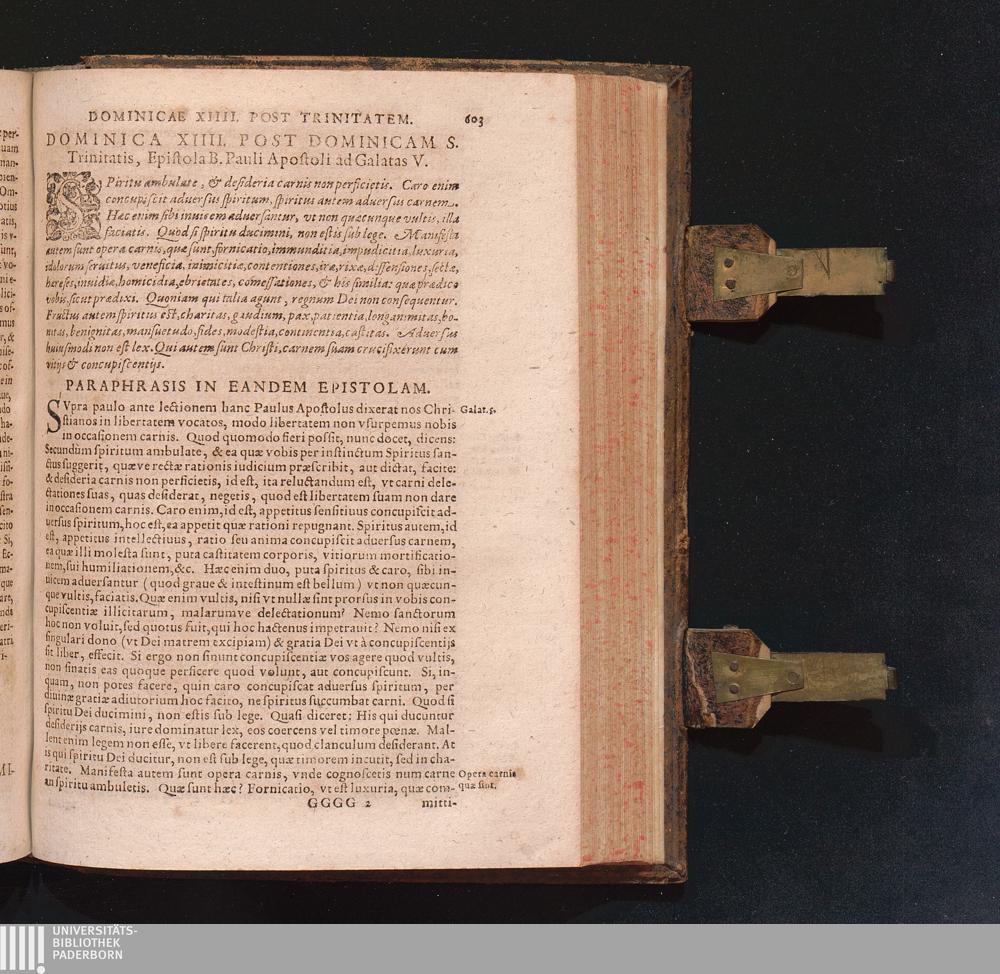 DOMINICAE XIIII. POST TRINITATEM. 603
DOMINICA XIIII. POST DOMINICAM S.
Trinitatis, Epiſtola B. Pauli Apoſtoli ad Galatas V.
SPiritu ambulate, & deſideria carnis non perficietis. Caro enim
concupiſcit aduerſus ſpiritum, ſpiritus autem aduerſus carnem.
Hæc enim ſibi inuicem aduerſantur, vt non quæcunque vultis, illa
faciatis. Quod ſi ſpiritu ducimini, non eſtis ſub lege. Manifeſta
autem ſunt opera carnis, quæ ſunt, fornicatio, immunditia, impudicitia, luxuria,
idolorum ſeruitus, veneficia, inimicitiæ, contentiones, iræ, rixæ, diſſenſiones, ſectæ,
hæreſes, inuidiæ, homicidia, ebrietates, comeſſationes, & his ſimilia: quæ prædico
vobis, ſicut prædixi. Quoniam qui talia agunt, regnum Dei non conſequentur.
Fructus autem ſpiritus eſt, charitas, gaudium, pax, patientia, longanimitas, bo-
nitas, benignitas, manſuetudo, fides, modeſtia, continentia, caſtitas. Aduerſus
huiuſmodi non eſt lex. Qui autem ſunt Chriſti, carnem ſuam crucifixerunt cum
vitijs & concupiſcentijs.
PARAPHRASIS IN EANDEM EPISTOLAM.
SVpra paulo ante lectionem hanc Paulus Apoſtolus dixerat nos Chri- Galat.5.
ſtianos in libertatem vocatos, modo libertatem non vſurpemus nobis
in occaſionem carnis. Quod quomodo fieri poſſit, nunc docet, dicens:
Secundùm ſpiritum ambulate, & ea quæ vobis per inſtinctum Spiritus ſan-
ctus ſuggerit, quæve rectæ rationis iudicium præſcribit, aut dictat, facite:
& deſideria carnis non perficietis, id eſt, ita reluctandum eſt, vt carni dele-
ctationes ſuas, quas deſiderat, negetis, quod eſt libertatem ſuam non dare
in occaſionem carnis. Caro enim, id eſt, appetitus ſenſitiuus concupiſcit ad-
uerſus ſpiritum, hoc eſt, ea appetit quæ rationi repugnant. Spiritus autem, id
eſt, appetitus intellectiuus, ratio ſeu anima concupiſcit aduerſus carnem,
ea quæ illi moleſta ſunt, puta caſtitatem corporis, vitiorum mortificatio-
nem, ſui humiliationem, &c. Hæc enim duo, puta ſpiritus & caro, ſibi in-
uicem aduerſantur (quod graue & inteſtinum eſt bellum) vt non quæcun-
que vultis, faciatis. Quæ enim vultis, niſi vt nullæ ſint prorſus in vobis con-
cupiſcentiæ illicitarum, malarumve delectationum? Nemo ſanctorum
hoc non voluit, ſed quotus fuit, qui hoc hactenus impetrauit? Nemo niſi ex
ſingulari dono (vt Dei matrem excipiam) & gratia Dei vt à concupiſcentijs
ſit liber, effecit. Si ergo non ſinunt concupiſcentiæ vos agere quod vultis,
non ſinatis eas quoque perficere quod volunt, aut concupiſcunt. Si, in-
quam, non potes facere, quin caro concupiſcat aduersus ſpiritum, per
diuinæ gratiæ adiutorium hoc facito, ne ſpiritus ſuccumbat carni. Quod ſi
ſpiritu Dei ducimini, non eſtis ſub lege. Quaſi diceret: His qui ducuntur
deſiderijs carnis, iure dominatur lex, eos coercens vel timore pœnæ. Mal-
lent enim legem non eſſe, vt libere facerent, quod clanculum deſiderant. At
is qui ſpiritu Dei ducitur, non eſt ſub lege, quæ timorem incutit, ſed in cha-
ritate. Manifeſta autem ſunt opera carnis, vnde cognoſcetis num carne Opera carnis
an ſpiritu ambuletis. Quæ ſunt hæc? Fornicatio, vt eſt luxuria, quæ com- quæ ſint.
GGGG 2 mitti-
UNIVERSITÄTS-
BIBLIOTHEK
PADERBORN